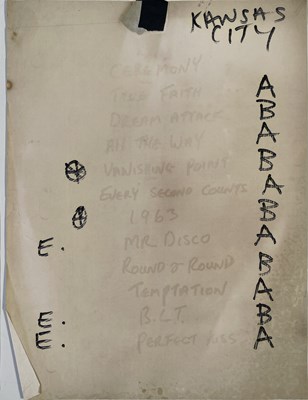 KANSAS
CITY
CEREMONY A
TRUE FAITH B
DREAM ATTACK A
ALL THE WAY B
VANISHING POINT A
EVERY SECOND COUNTS B
1963 A
E. MR DISCO B
ROUND & ROUND A
TEMPTATION B
E. B.L.T. A
E. PERFECT KISS B
A